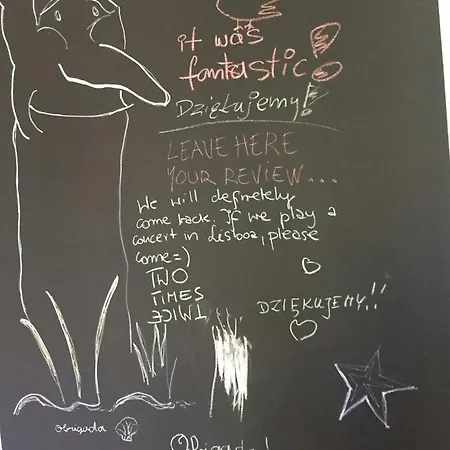 it was
fantastic!
Dziękujemy!
LEAVE HERE
YOUR REVIEW...
We will definetely
come back. If we play a
concert in Lisboa, please
come =)
TWO
TIMES
TWICE
DZIĘKUJEMY!!
Obrigada
Obrigado!